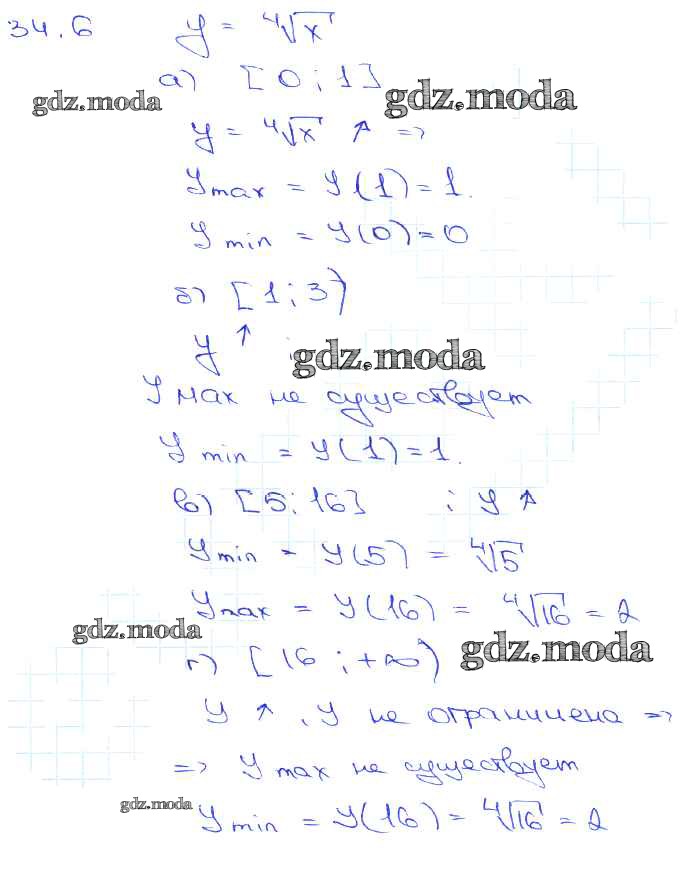 34.6 y = ⁴√x
а) [0; 1]
gdz.moda gdz.moda
y = ⁴√x ↑ =>
y max = y(1) = 1.
y min = y(0) = 0
б) [1; 3)
y ↑
gdz.moda
y мах не существует
y min = y(1) = 1.
в) [5; 16] ; y ↑
y min = y(5) = ⁴√5
y max = y(16) = ⁴√16 = 2
gdz.moda gdz.moda
г) [16; +∞)
y ↑, y не ограничена =>
=> y max не существует
gdz.moda
y min = y(16) = ⁴√16 = 2